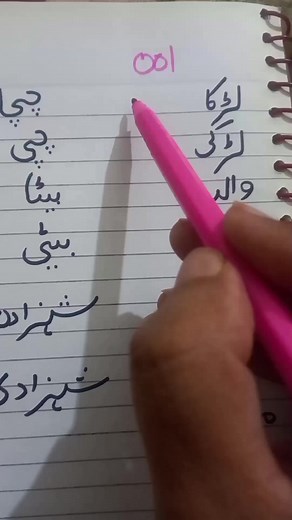 001
لڑکا چچا
لڑکی چچی
والد بیٹا
بیٹی
شہزادہ
شہزادی